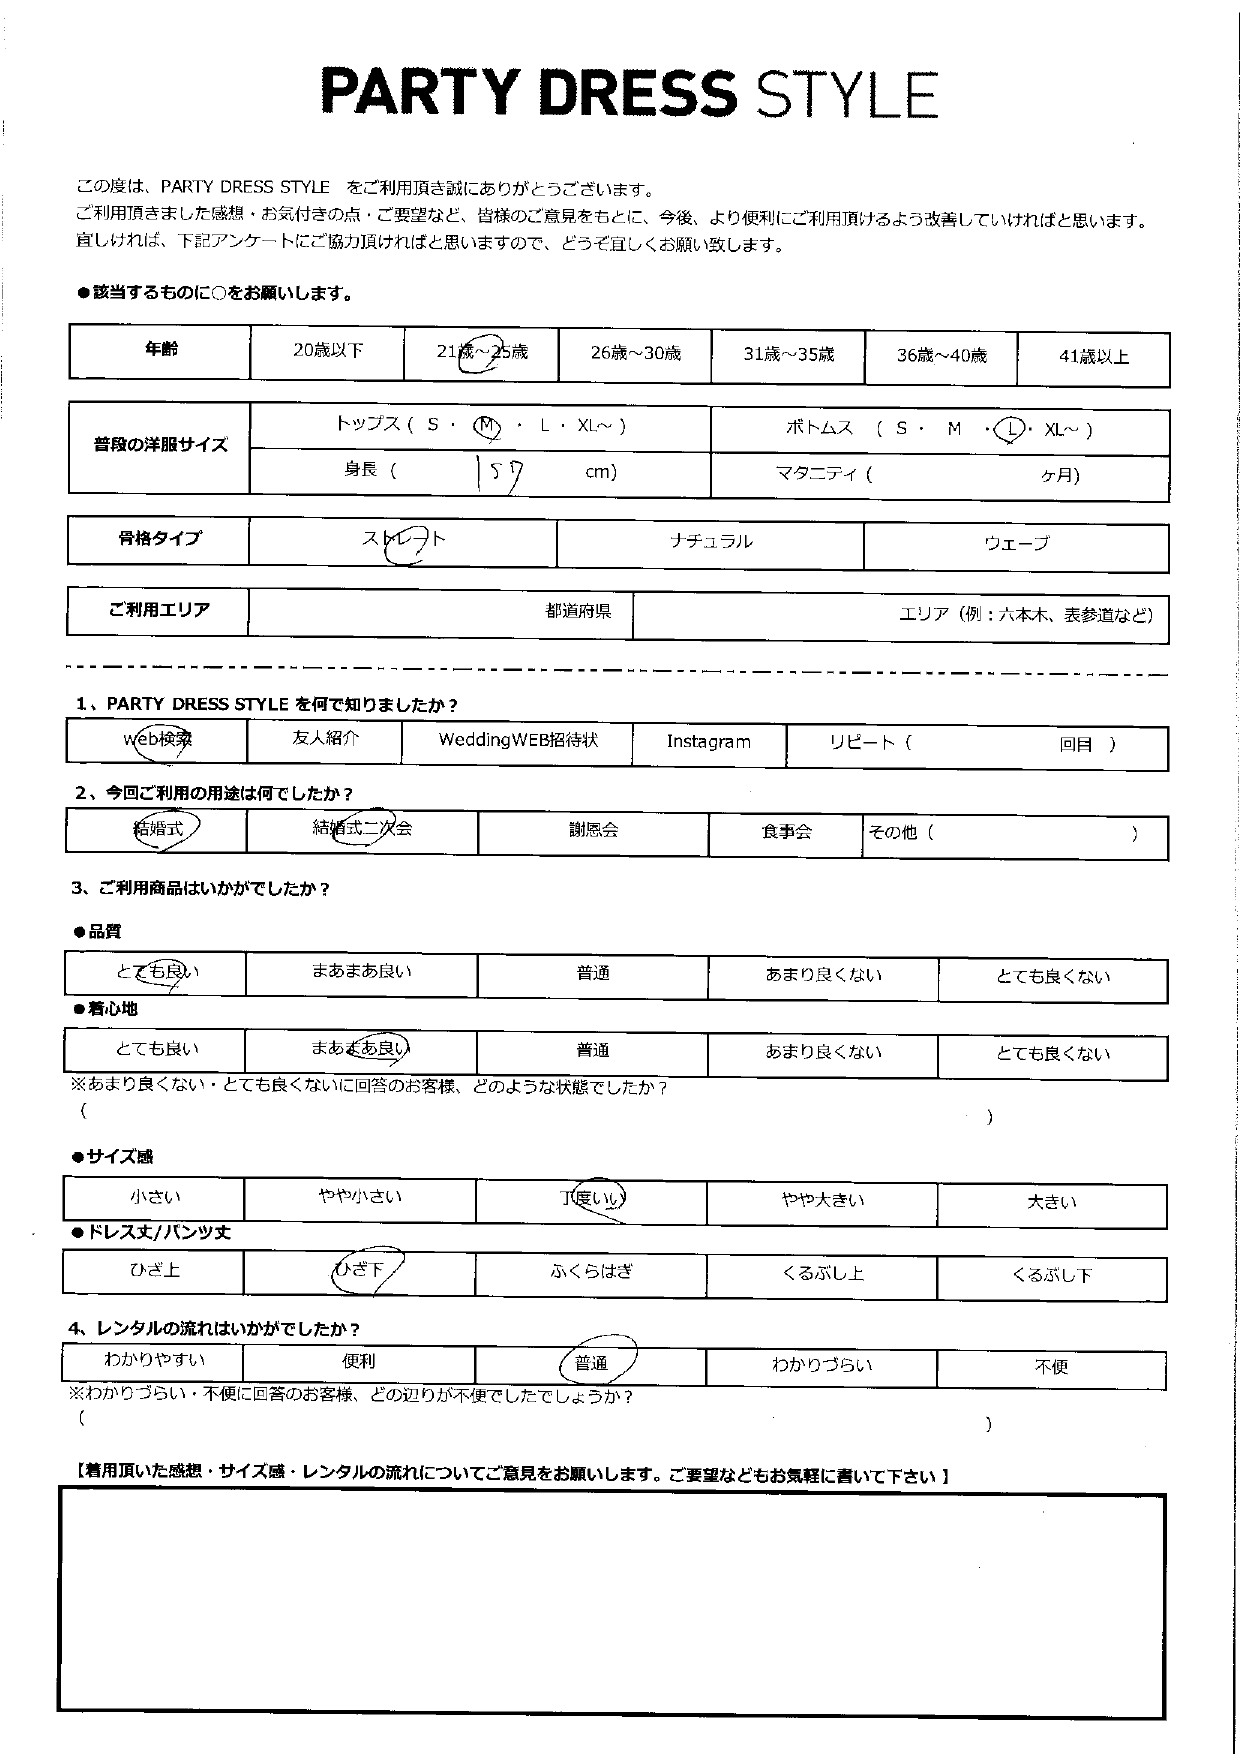 PARTY DRESS STYLE
この度は、PARTY DRESS STYLE をご利用頂き誠にありがとうございます。
ご利用頂きました感想・お気付きの点・ご要望など、皆様のご意見をもとに、今後、より便利にご利用頂けるよう改善していければと思います。
宜しければ、下記アンケートにご協力頂ければと思いますので、どうぞ宜しくお願い致します。
●該当するものに○をお願いします。
年齢 20歳以下 21歳～25歳 26歳～30歳 31歳～35歳 36歳～40歳 41歳以上
普段の洋服サイズ トップス ( S ・ M ・ L ・ XL～ ) ボトムス ( S ・ M ・ L ・ XL～ )
身長 ( 157 cm) マタニティ ( ヶ月)
骨格タイプ ストレート ナチュラル ウェーブ
ご利用エリア 都道府県 エリア（例：六本木、表参道など）
1、PARTY DRESS STYLE を何で知りましたか？
web検索 友人紹介 WeddingWEB招待状 Instagram リピート ( 回目 )
2、今回ご利用の用途は何でしたか？
結婚式 結婚式二次会 謝恩会 食事会 その他 ( )
3、ご利用商品はいかがでしたか？
●品質
とても良い まあまあ良い 普通 あまり良くない とても良くない
●着心地
とても良い まあまあ良い 普通 あまり良くない とても良くない
※あまり良くない・とても良くないに回答のお客様、どのような状態でしたか？
( )
●サイズ感
小さい やや小さい 丁度いい やや大きい 大きい
●ドレス丈/パンツ丈
ひざ上 ひざ下 ふくらはぎ くるぶし上 くるぶし下
4、レンタルの流れはいかがでしたか？
わかりやすい 便利 普通 わかりづらい 不便
※わかりづらい・不便に回答のお客様、どの辺りが不便でしたでしょうか？
( )
【着用頂いた感想・サイズ感・レンタルの流れについてご意見をお願いします。ご要望などもお気軽に書いて下さい】